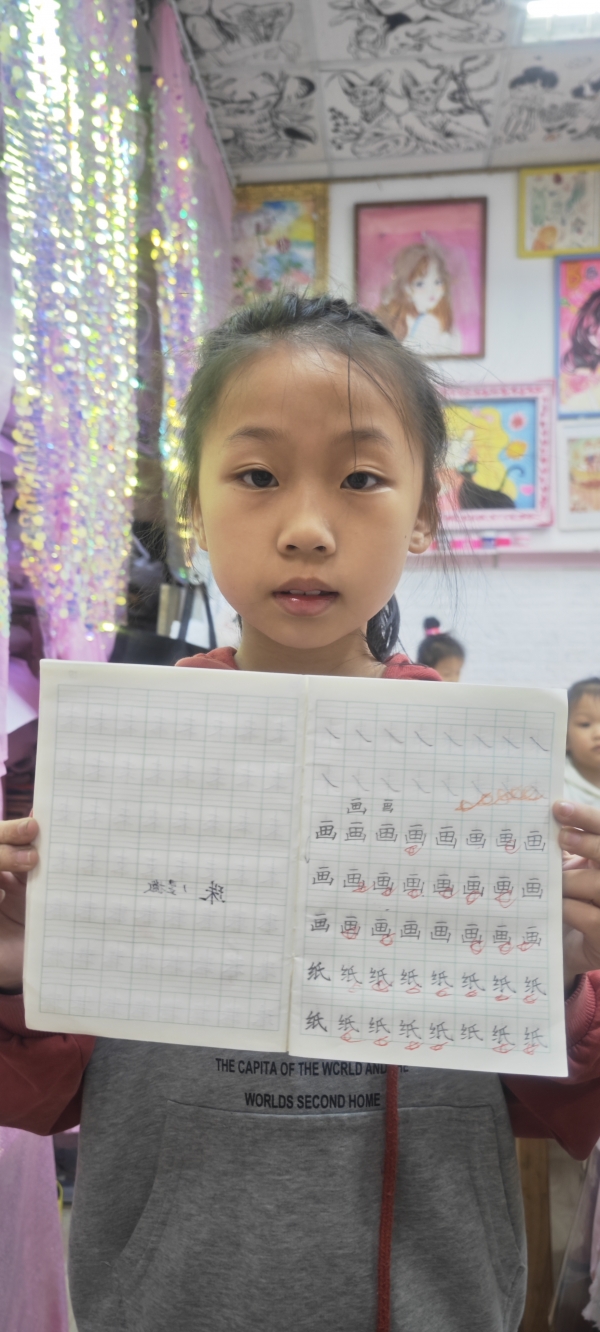 画 画
画 画 画 画 画 画 画 画
画 画 画 画 画 画 画 画
画 画 画 画 画 画 画 画
纸 纸 纸 纸 纸 纸 纸 纸
纸 纸 纸 纸 纸 纸 纸 纸
THE CAPITA OF THE WCRLD AND
WORLDS SECOND HOME